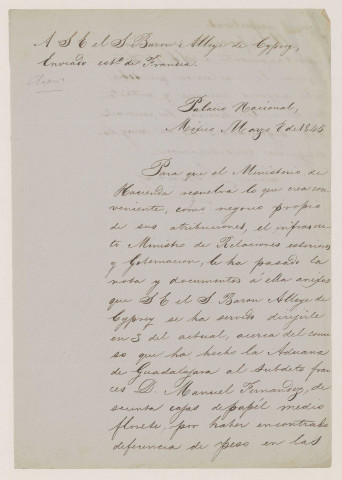 A S E el S. Baron Alleye de Cyprey,
Enviado estº. de Francia.
Palacio Nacional,
Mejico Mayo 7 de 1845
Para que el Ministerio de
Hacienda resuelva lo que crea con-
veniente, como negocio propio
de sus atribuciones, el infrascri-
to Ministro de Relaciones esteriores
y Gobernacion, le ha pasado la
nota y documentos á ella anejos
que S E el S Baron Alleye de
Cyprey se ha servido dirigirle
en 3 del actual, acerca del comi-
so que ha hecho la Aduana
de Guadalajara al subdito fran-
ces D. Manuel Fernandez, de
sesenta cajas de papél medio
florete, por haber encontrado
diferencia de peso en las